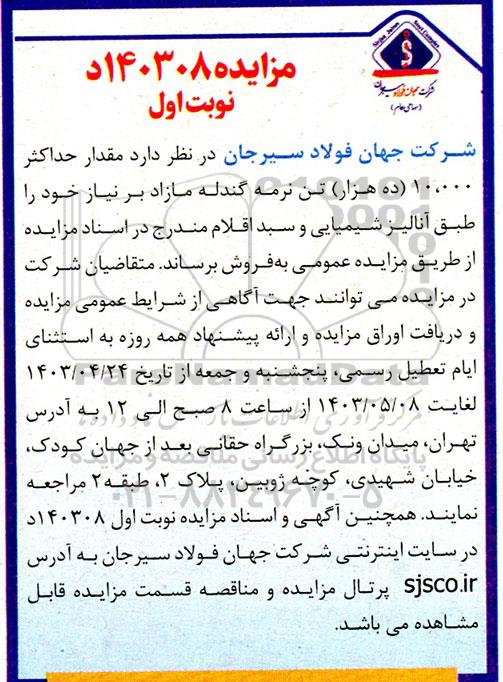 Sirjan Jahan Steel Complex
شرکت جهان فولاد سیرجان
(سهامی عام)
مزایده ۱۴۰۳۰۸د
نوبت اول
شرکت جهان فولاد سیرجان در نظر دارد مقدار حداکثر
۱۰،۰۰۰ (ده هزار) تن نرمه گندله مازاد بر نیاز خود را
طبق آنالیز شیمیایی و سبد اقلام مندرج در اسناد مزایده
از طریق مزایده عمومی به‌فروش برساند. متقاضیان شرکت
در مزایده می توانند جهت آگاهی از شرایط عمومی مزایده
و دریافت اوراق مزایده و ارائه پیشنهاد همه روزه به استثنای
ایام تعطیل رسمی، پنجشنبه و جمعه از تاریخ ۱۴۰۳/۰۴/۲۴
لغایت ۱۴۰۳/۰۵/۰۸ از ساعت ۸ صبح الی ۱۲ به آدرس
تهران، میدان ونک، بزرگراه حقانی بعد از جهان کودک،
خیابان شهیدی، کوچه ژوبین، پلاک ۲، طبقه ۲ مراجعه
نمایند. همچنین آگهی و اسناد مزایده نوبت اول ۱۴۰۳۰۸د
در سایت اینترنتی شرکت جهان فولاد سیرجان به آدرس
sjsco.ir پرتال مزایده و مناقصه قسمت مزایده قابل
مشاهده می باشد.
پایگاه اطلاع رسانی مناقصه و مزایده
۰۲۱-۸۸۳۴۹۶۷۰-۵